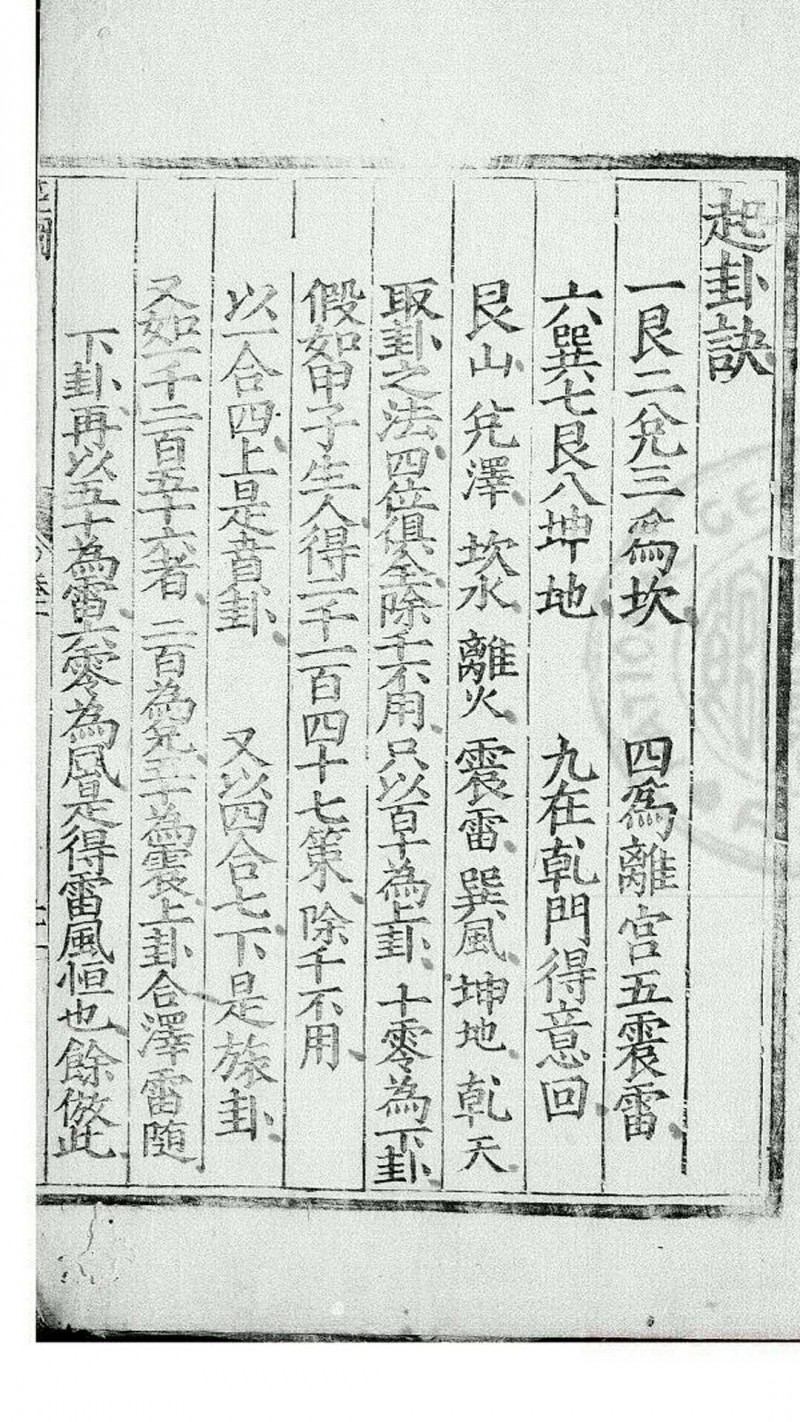 起卦訣
一艮二兌三爲坎 四爲離宮五震雷
六巽七艮八坤地 九在乹門得意回
艮山 兌澤 坎水 離火 震雷 巽風 坤地 乹天
取卦之法四位俱全除千不用只以百十為上卦 十零為下卦
假如甲子生人得二千一百四十七策 除千不用
以一合四上是賁卦 又以四合七下是旅卦
又如一千二百五十六者 二百為兌五十為震上卦合澤雷隨
下卦再以五十為雷六零為風是得雷風恒也餘倣此